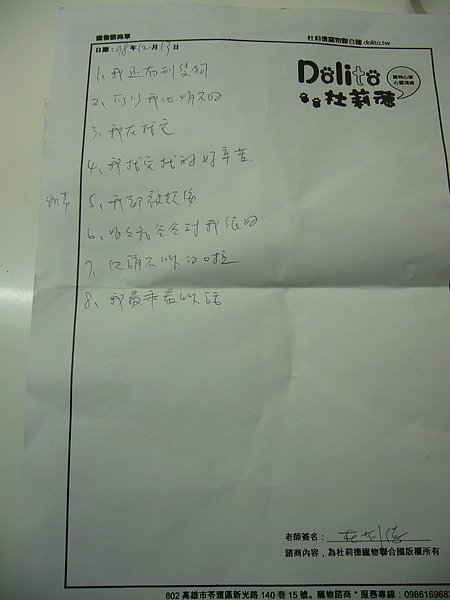 寵物諮商單
杜莉德寵物聯合國 dolito.tw
日期：98年12月13日
Dolito
寵物心事
心靈溝通
杜莉德
1、我还有別隻狗
2、可以我心情不好
3、我在找它
4、我找它找的好辛苦
5、我都被欺侮
6、哈和爸爸對我很好
7、他講不听的啦
8、我最乖最听話
老師簽名：杜莉德
諮商內容，為杜莉德寵物聯合國版權所有
802 高雄市苓雅區新光路 140 巷 15 號。寵物諮商＊服務專線：098616968